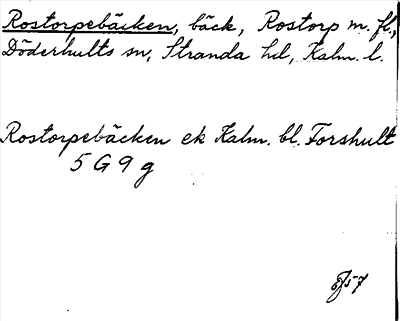 Rostorpebäcken, bäck, Rostorp m. fl.,
Döderhults sn, Stranda hd, Kalm. l.
Rostorpebäcken ek Kalm. bl. Forshult
5 G 9 g
57